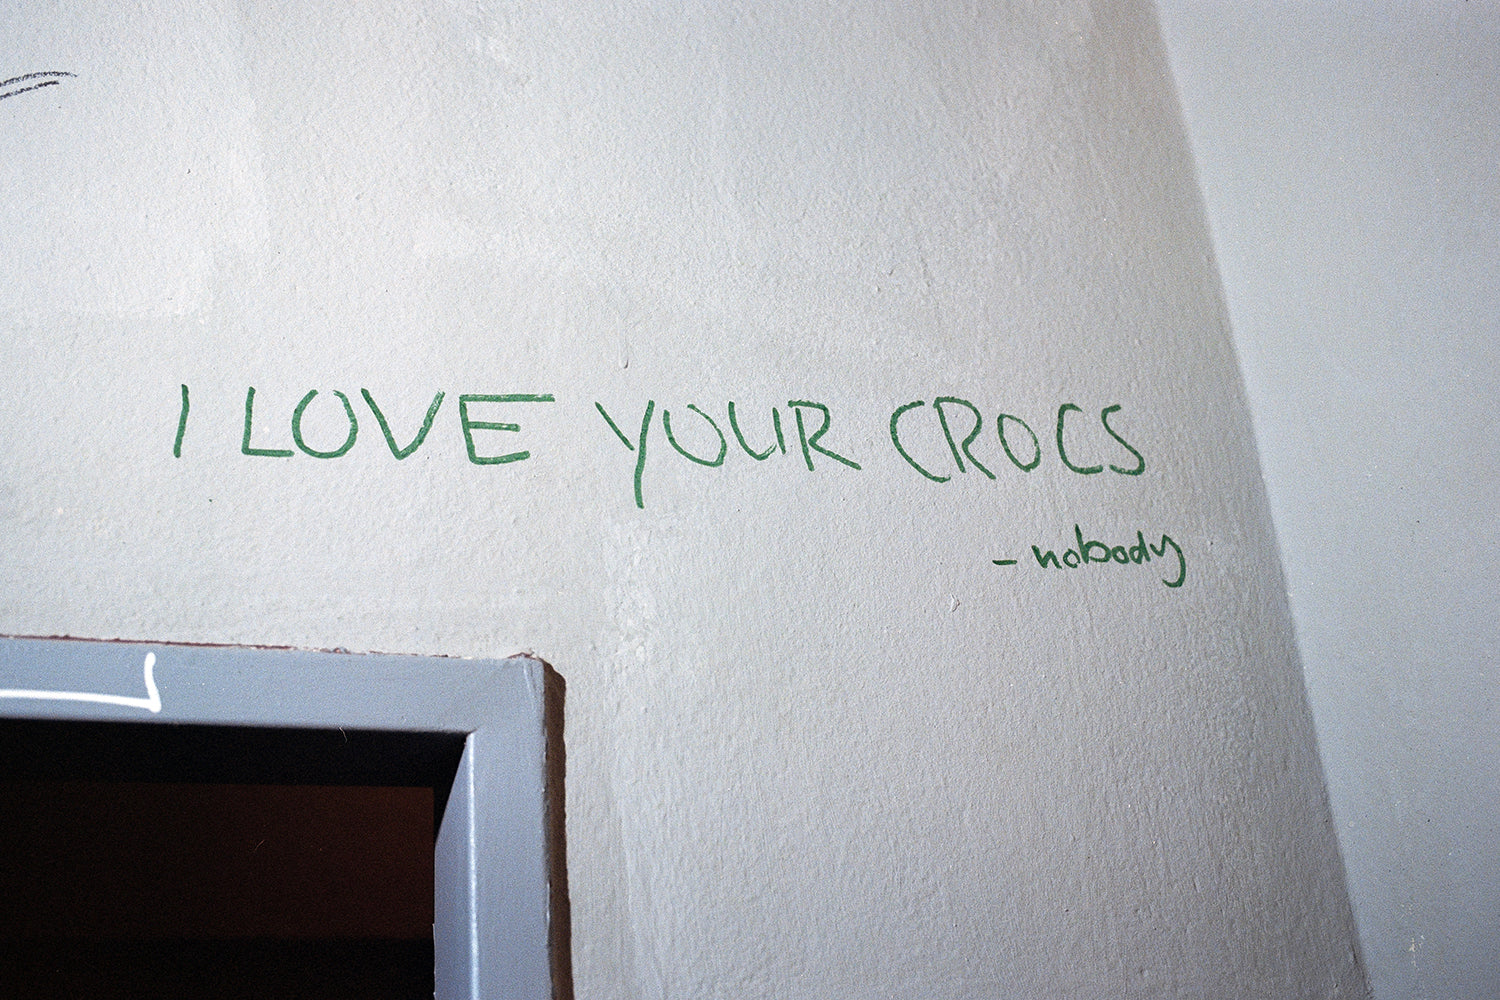 I LOVE YOUR CROCS
- nobody